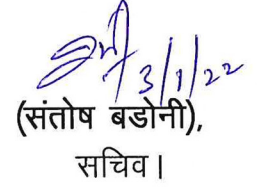 3/1/22
(संतोष बडोनी),
सचिव।